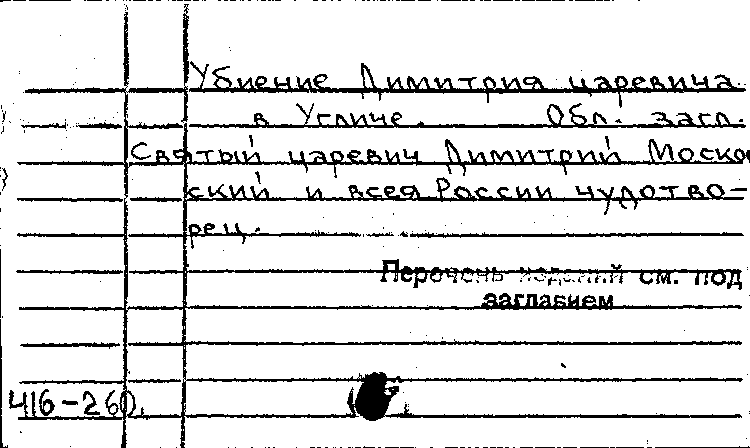 Убиение Димитрия царевича
в Угличе. Обл. загл.
Святый царевич Димитрий Москов
ский и всея России чудотво-
рец.
Перечень изданий см. под
заглавием
416-260.